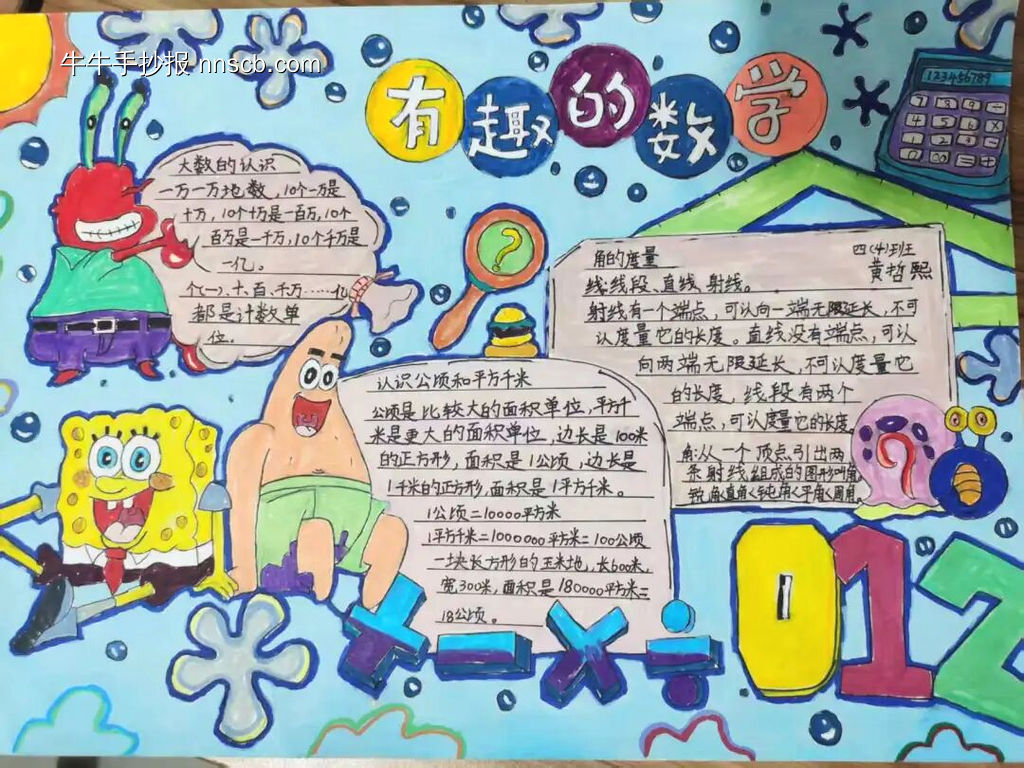 牛牛手抄报 nnscb.com
有趣的数学
123456789
7 8 9 ÷
4 5 6 ×
1 2 3 -
0 00 = +
大数的认识
一万一万地数，10个一万是
十万，10个十万是一百万，10个
百万是一千万，10个千万是
一亿。
个(一)、十、百、千万……亿
都是计数单
位。
角的度量
四(4)班
黄哲熙
线：线段、直线、射线。
射线有一个端点，可以向一端无限延长，不可
以度量它的长度。直线没有端点，可以
向两端无限延长，不可以度量它
的长度，线段有两个
端点，可以度量它的长度
角：从一个顶点引出两
条射线组成的图形叫角
锐角<直角<钝角<平角<周角
认识公顷和平方千米
公顷是比较大的面积单位，平方千
米是更大的面积单位，边长是100米
的正方形，面积是1公顷，边长是
1千米的正方形，面积是1平方千米。
1公顷=10000平方米
1平方千米=1000000平方米=100公顷
一块长方形的玉米地，长600米，
宽300米，面积是180000平方米=
18公顷。
+ - × ÷
0 1 2
?